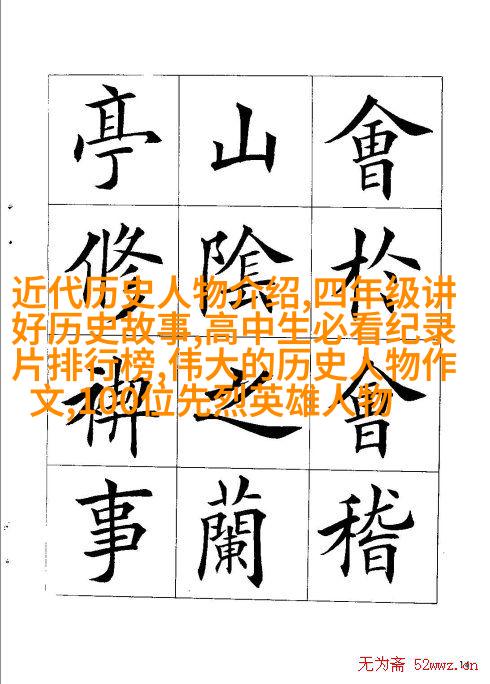 會扵會稽
山陰之蘭
亭修禊事
近代历史人物介绍,四年级讲
好历史故事,高中生必看纪录
片排行榜,伟大的历史人物作
文,100位先烈英雄人物
无为斋 52wwz.cn